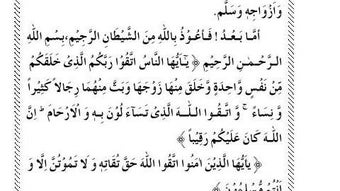 وَاَزْوَاجِهٖ وَسَلَّمَ.
اَمَّا بَعْدُ ! فَاَعُوْذُ بِاللّٰهِ مِنَ الشَّيْطَانِ الرَّجِيْمِ، بِسْمِ اللّٰهِ
الرَّحْمٰنِ الرَّحِيْمِ ﴿ يٰٓاَيُّهَا النَّاسُ اتَّقُوْا رَبَّكُمُ الَّذِىْ خَلَقَكُمْ
مِّنْ نَفْسٍ وَّاحِدَةٍ وَّخَلَقَ مِنْهَا زَوْجَهَا وَبَثَّ مِنْهُمَا رِجَالاً كَثِيْراً
وَّ نِسَاءً ۚ وَ اتَّقُوا اللّٰهَ الَّذِىْ تَسَآءَ لُوْنَ بِهٖ وَ الْاَرْحَامَ ؕ اِنَّ
اللّٰهَ كَانَ عَلَيْكُمْ رَقِيْباً ﴾
﴿ يٰاَيُّهَا الَّذِيْنَ اٰمَنُوا اتَّقُوا اللّٰهَ حَقَّ تُقَاتِهٖ وَ لَا تَمُوْتُنَّ اِلَّا وَ
اَنْتُمْ مُّسْلِمُوْنَ ﴾